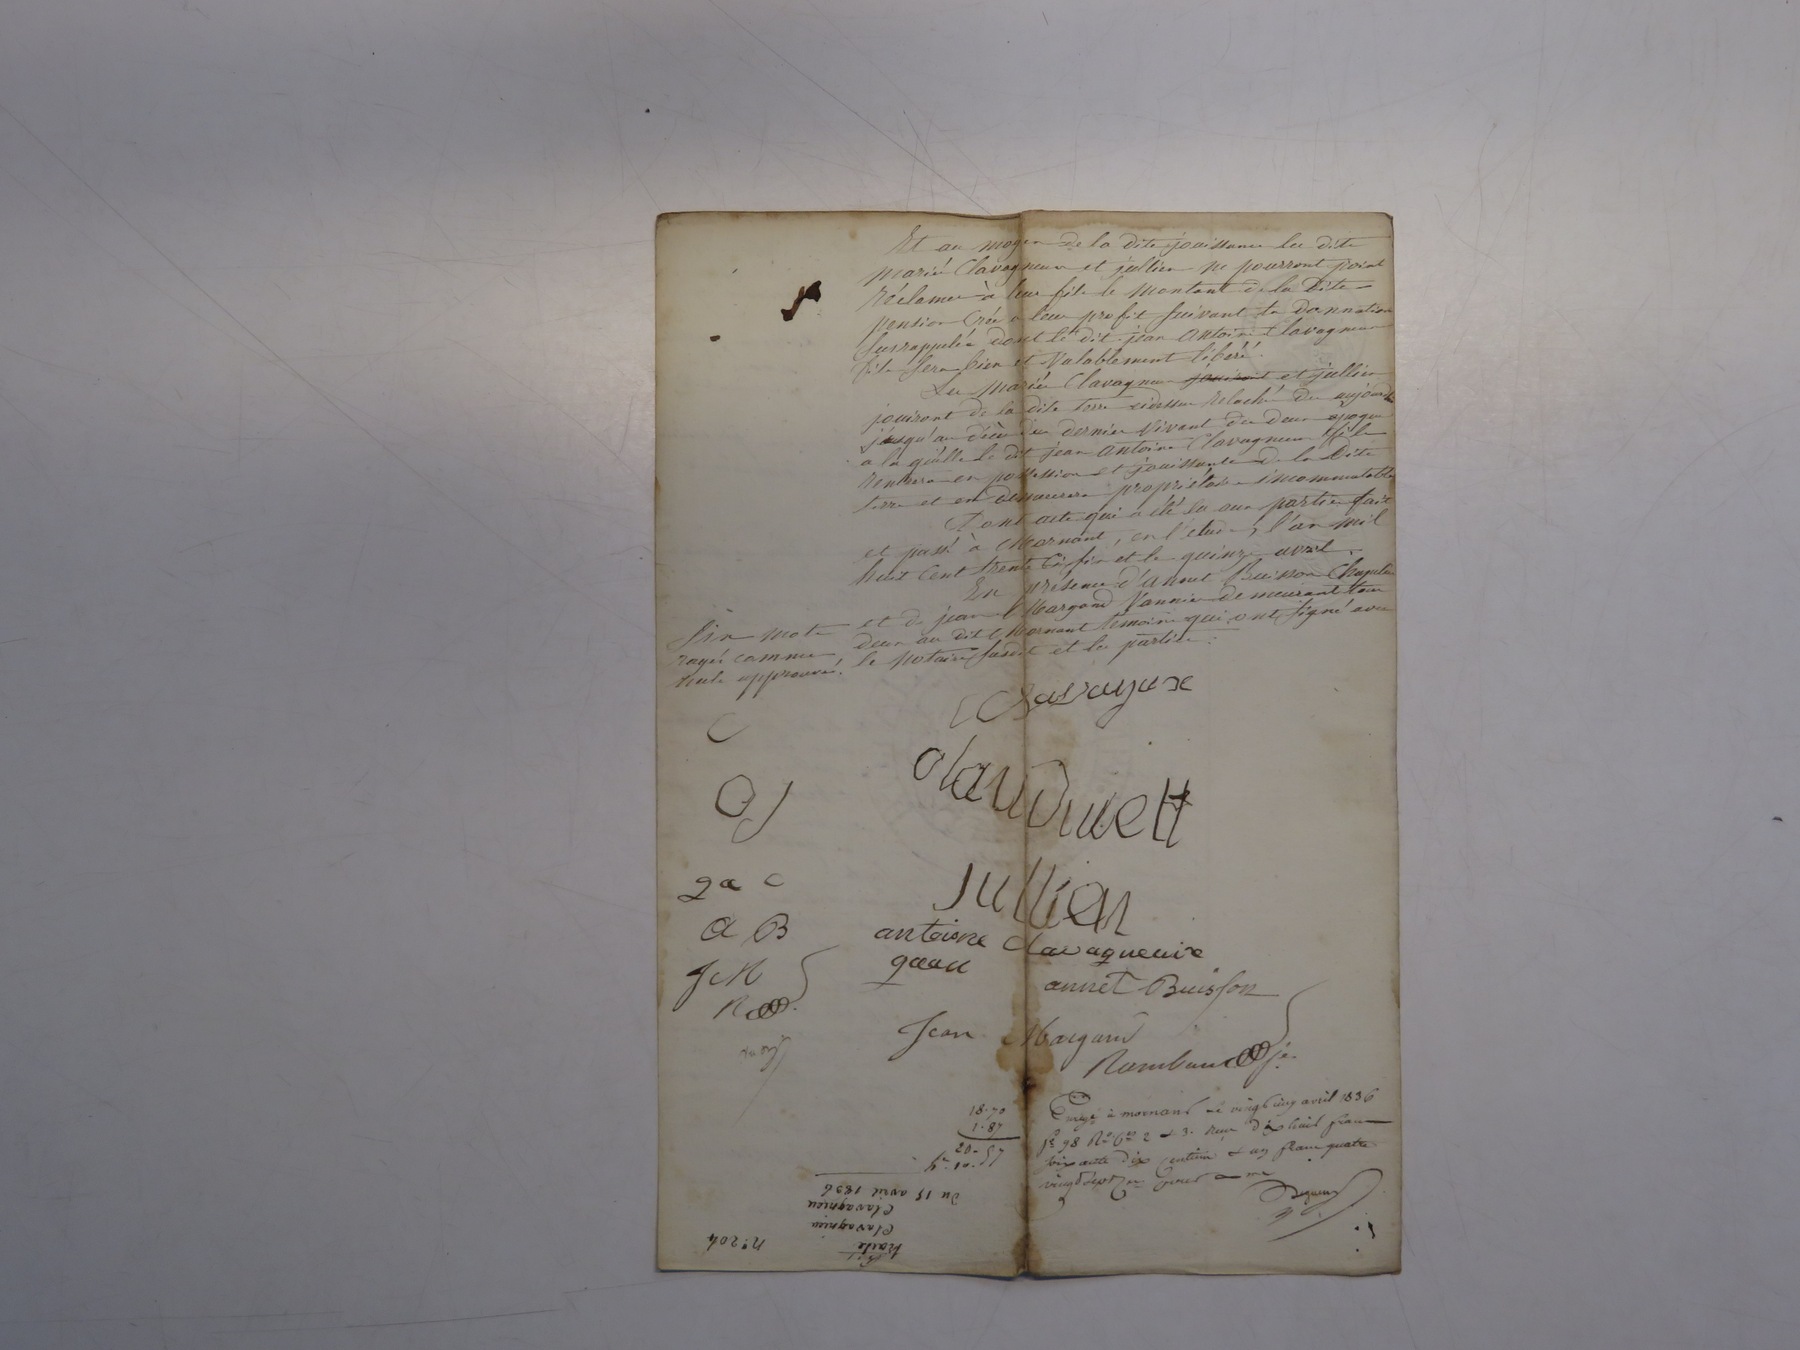 Et au moyen de la dite jouissance les dits
mariés Clavagneux et jullien ne pourront point
réclamer à leur fils le montant de la dite
pension créé a leur profit suivant la donnation
susrappelée dont le dit jean Antoine Clavagneux
fils sera bien et valablement libéré.
Les mariés Clavagneux jouiront et jullien
jouiront de la dite terre cidessus relaché des aujourd
jusqu'au décès du dernier vivant des deux epoque
a la quelle le dit jean Antoine Clavagneux fils
rentrera en possession et jouissance de la dite
terre et en demeurera propriétaire incommutable
Dont acte qui a été lu aux parties fait
et passé à Mornant, en l'étude, l'an mil
huit cent trente six et le quinze avril.
En présence d'Annet Buisson Chapelier
et de jean Margand Vannier demeurant tous
deux au dit Mornant témoins qui ont signé avec
le notaire susdit et les parties :
Six mots
rayés comme
nuls approuvé.
C
C J
ga C
a B
J M
R
Clavagneux
Claudinett
Jullian
antoine Clavagneuxe
gean
annet Buisson
Jean Margand
Rambaud je.
Enregé à mornant le vingt cinq avril 1836
fo 98 Ro Ces 2 et 3. reçu dix huit francs
soixante dix centimes et un franc quatre
vingt sept
18.70
1.87
20.57
4.10.
traité
Clavagnieu
Clavagnieu
du 15 avril 1836
No 204